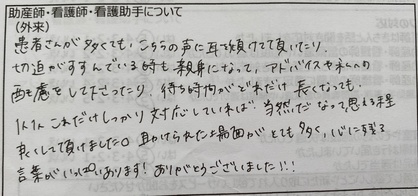 助産師・看護師・看護助手について
(外来)
患者さんが多くても、こちらの声に耳を傾けて頂いたり、
切迫がすすんでいる時も親身になって、アドバイスや私への
配慮をして下さったり、待ち時間がどれだけ長くなっても、
これだけしっかり対応していれば、当然だなって思える程
良くして頂けました。助けられた場面がとても多く、心に残る
言葉がいっぱいあります!ありがとうございました!!